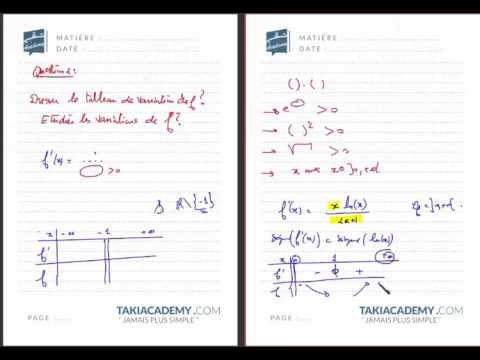 MATIÈRE :
DATE :
Question 2:
Dresser le tableau de variation de f ?
Etudier les variations de f ?
f'(x) = ... > 0
si ℝ\{-1}
x -∞ -1 +∞
f'
f
TAKIACADEMY.COM
PAGE : "JAMAIS PLUS SIMPLE"
MATIÈRE :
DATE :
( ) . ( )
→ e > 0
→ ( )² > 0
→ √ > 0
→ x
f'(x) = x ln(x) / 2x+1
Signe(f'(x)) = signe(ln(x))
x 0 1 +∞
f' - 0 +
f
TAKIACADEMY.COM
PAGE : "JAMAIS PLUS SIMPLE"